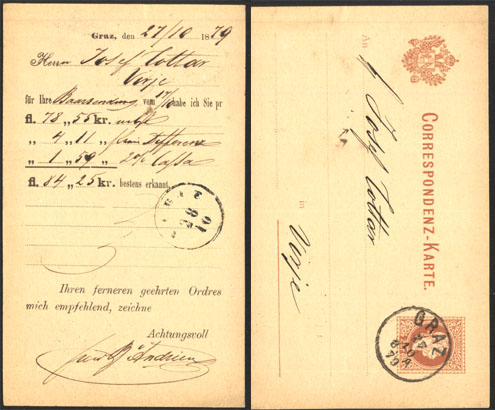 Graz, den 27/10 1879
Herrn Josef Tottar
Virje
für Ihre Baarsendung vom 17/10 habe ich Sie pr
fl. 78 „ 55 kr.
„ 4 „ 11 „ Differenz
„ 1 „ 59 „ 2% Cassa
fl. 84 „ 25 kr. bestens erkannt.
28
10
Ihren ferneren geehrten Ordres
mich empfehlend, zeichne
Achtungsvoll
An
Josef Tottar
in
Virje
CORRESPONDENZ-KARTE.
GRAZ
27
10
79